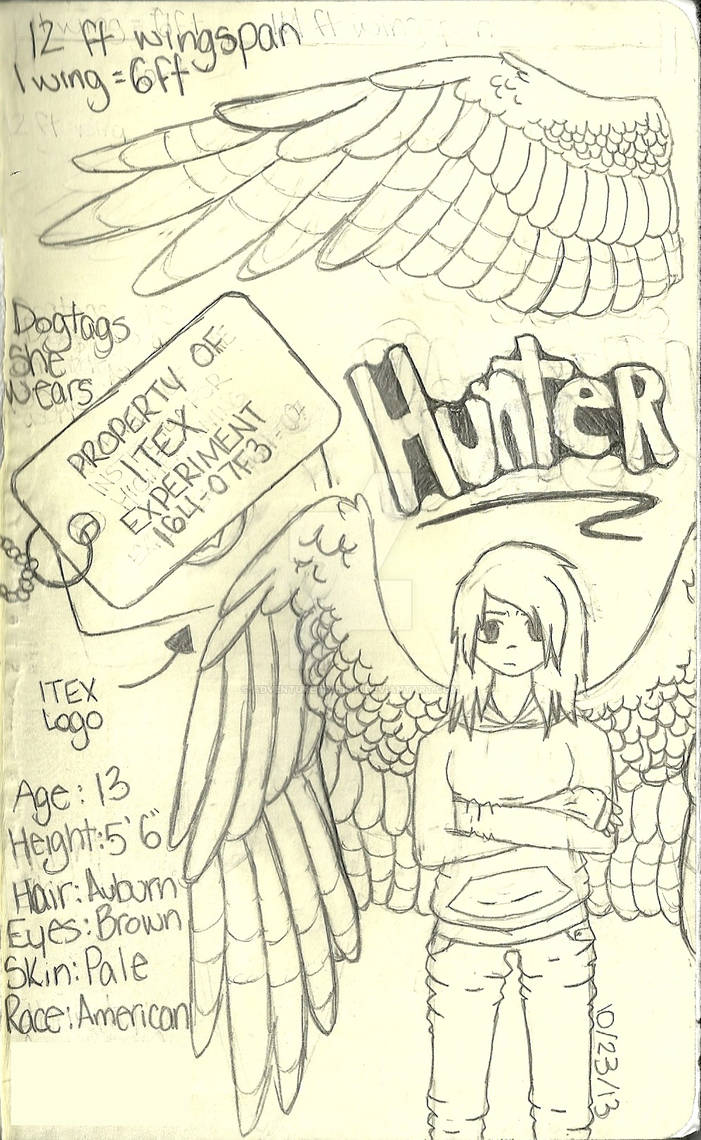 12 ft wingspan
1 wing = 6ft
Dogtags
She
wears
PROPERTY OF
ITEX
EXPERIMENT
HunteR
ITEX
Logo
Age: 13
Height: 5'6"
Hair: Auburn
Eyes: Brown
Skin: Pale
Race: American
10/23/13